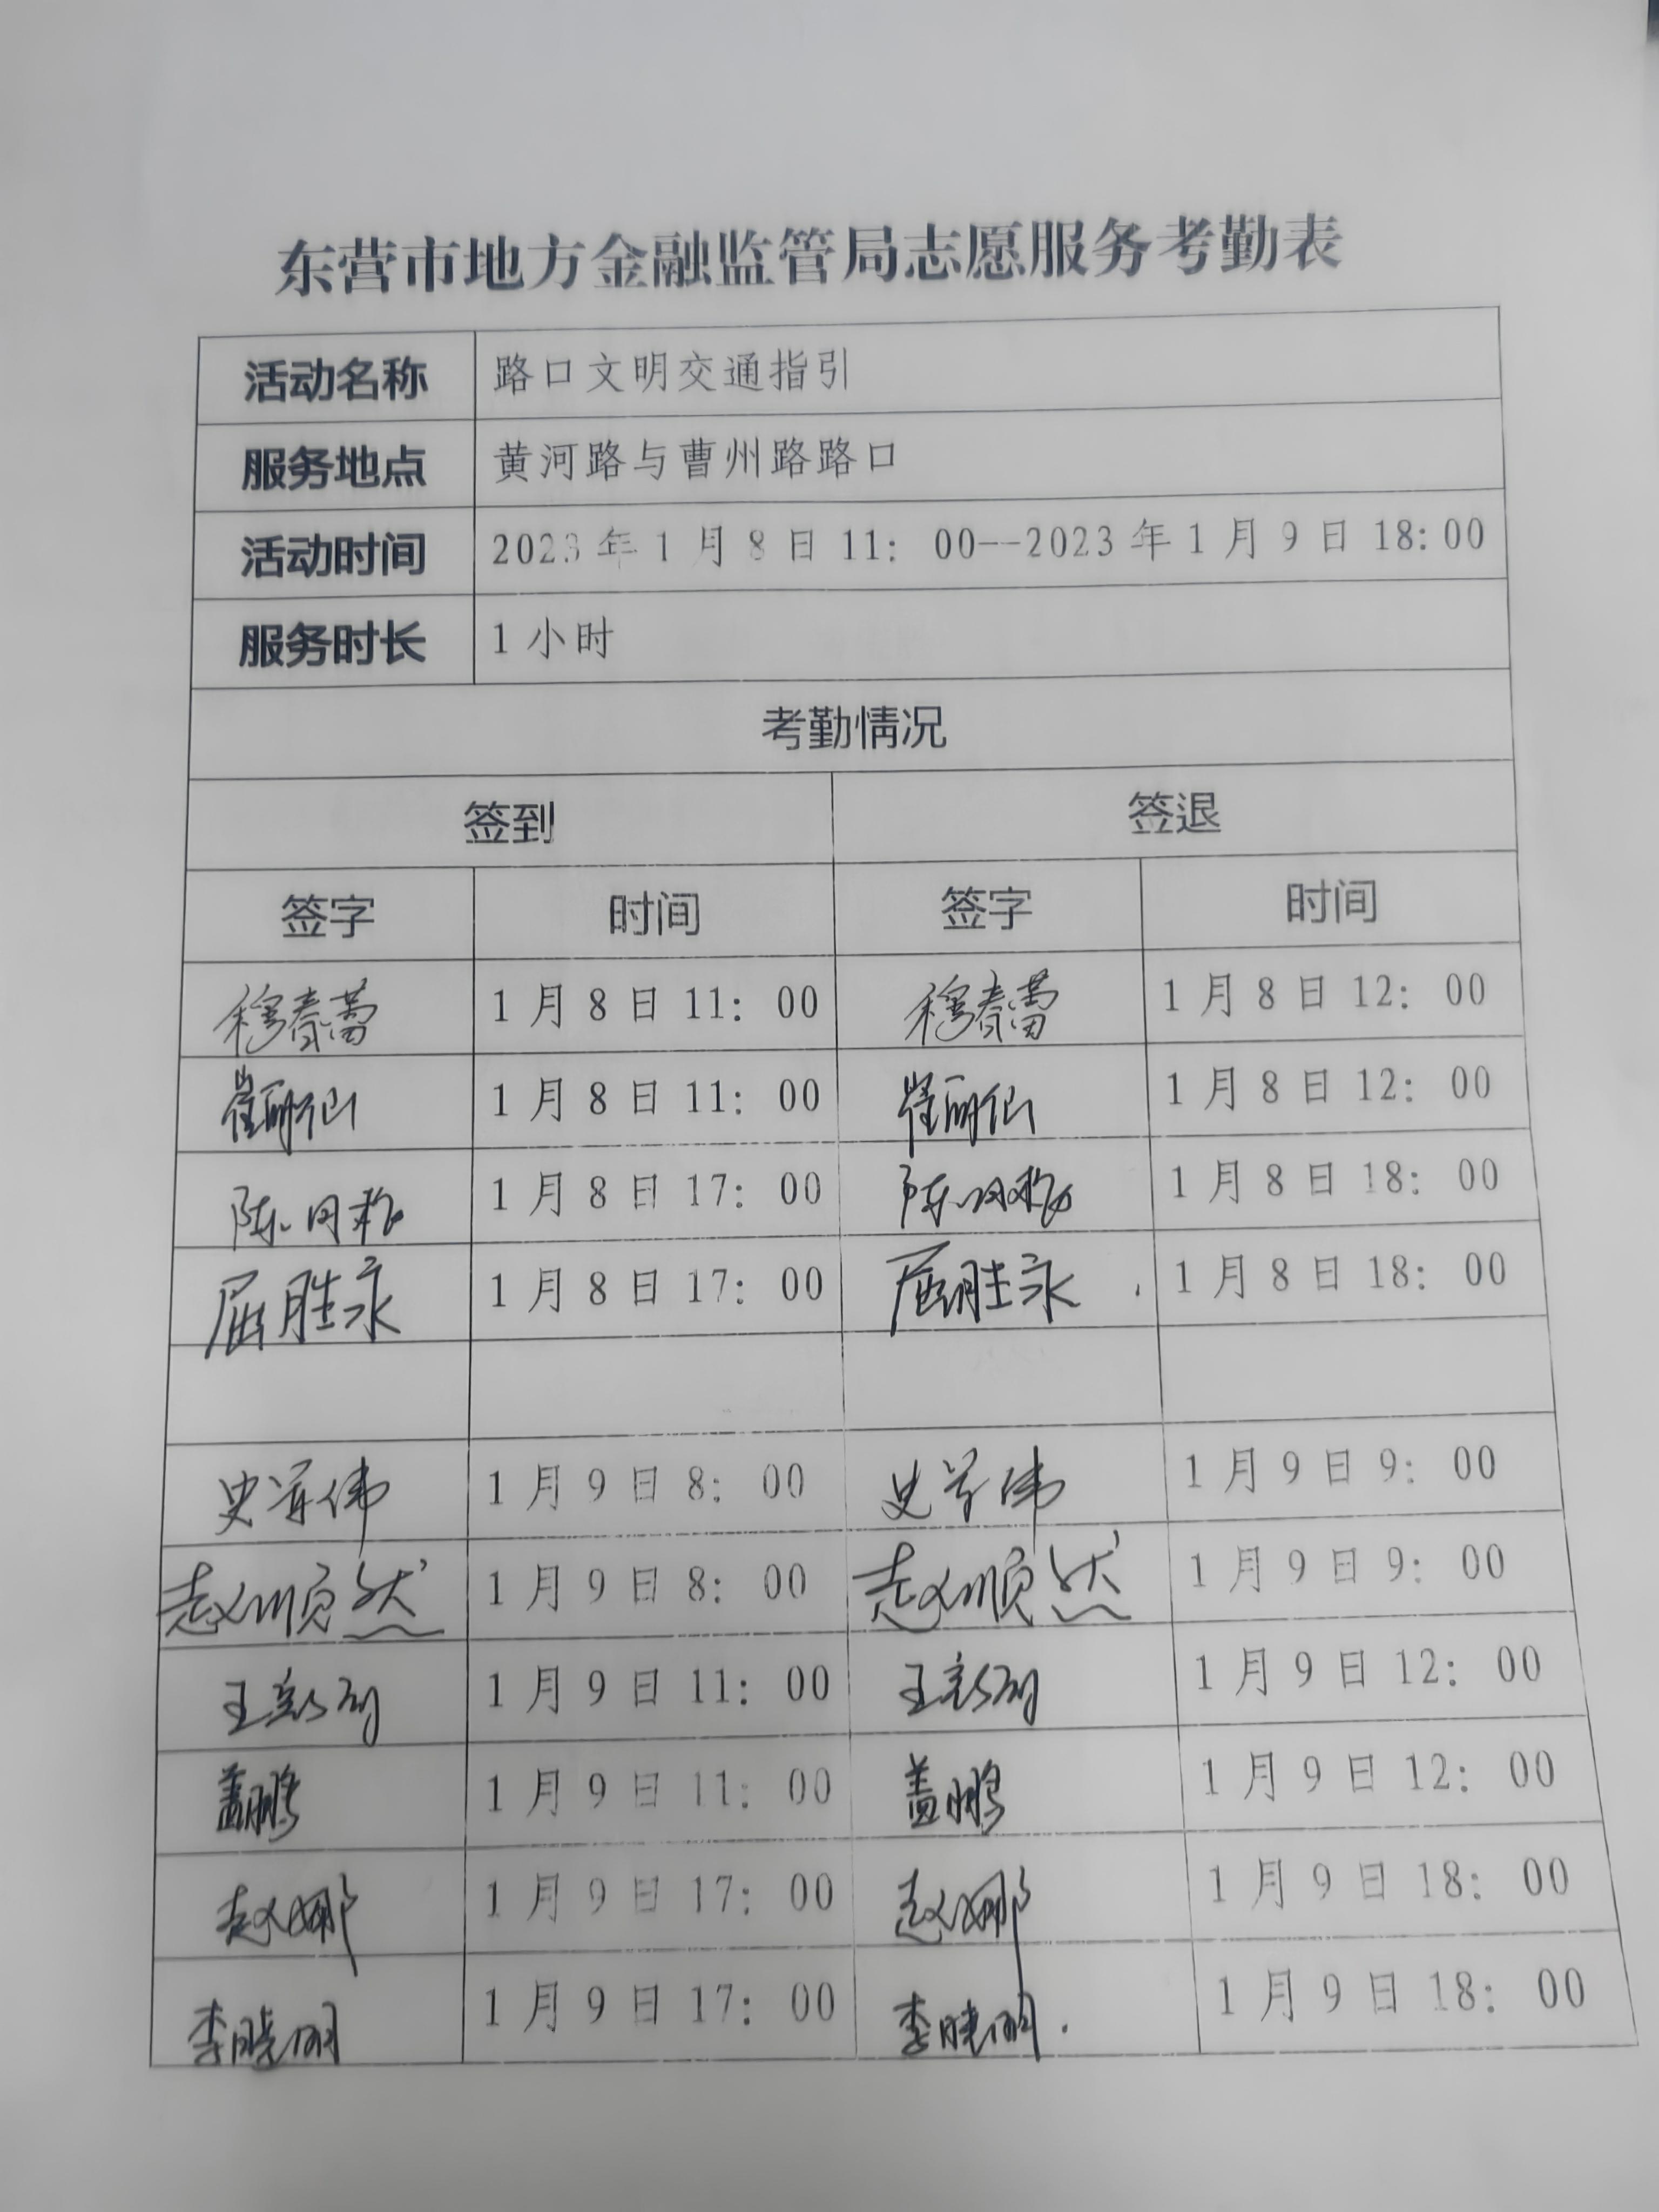 东营市地方金融监管局志愿服务考勤表
活动名称 路口文明交通指引
服务地点 黄河路与曹州路路口
活动时间 2023年1月8日11：00--2023年1月9日18:00
服务时长 1小时
考勤情况
签到 签退
签字 时间 签字 时间
穆春蕾 1月8日11：00 穆春蕾 1月8日12：00
崔丽仙 1月8日11：00 崔丽仙 1月8日12：00
陈 1月8日17：00 陈 1月8日18：00
屈胜永 1月8日17：00 屈胜永 1月8日18：00
史 伟 1月9日8：00 史 伟 1月9日9：00
赵顺然 1月9日8：00 赵顺然 1月9日9：00
王 1月9日11：00 王 1月9日12：00
盖鹏 1月9日11：00 盖鹏 1月9日12：00
赵娜 1月9日17：00 赵娜 1月9日18：00
李晓明 1月9日17：00 李晓明 1月9日18：00